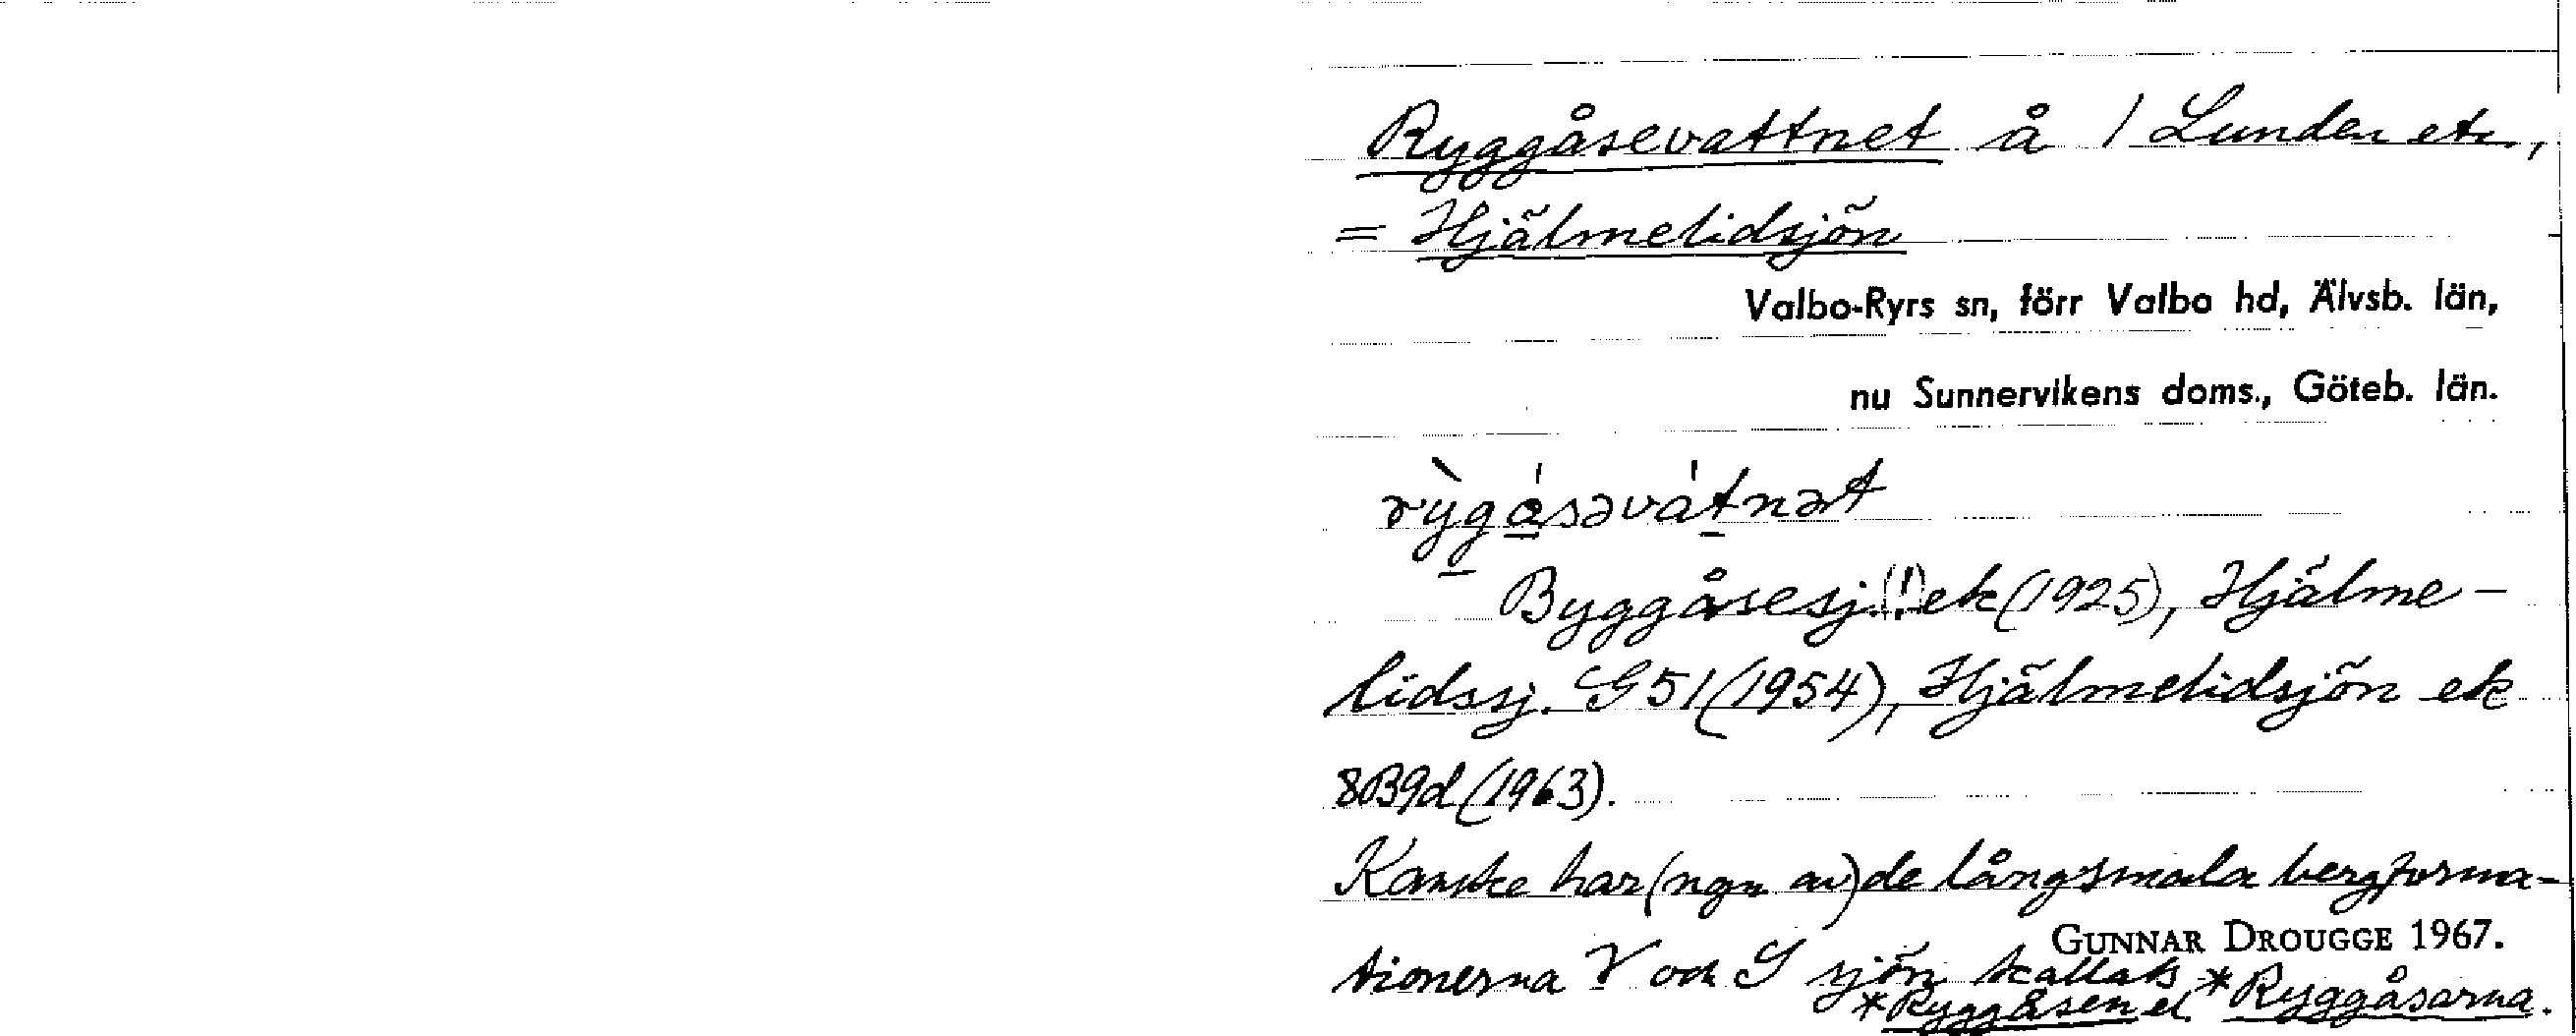 Ryggåsevattnet å 1 Lunden etc.,
= Hjälmelidsjön
Valbo-Ryrs sn, förr Valbo hd, Älvsb. län,
nu Sunnervikens doms., Göteb. län.
Byggåsesj.(!) ek (1925), Hjälme-
lidssj. G 51 (1954), Hjälmelidsjön ek
8B9d (1963).
Kanske har (ngn av) de långsmala bergforma-
GUNNAR DROUGGE 1967.
tionerna V och S sjön kallats
*Ryggåsen el. *Ryggåsarna.